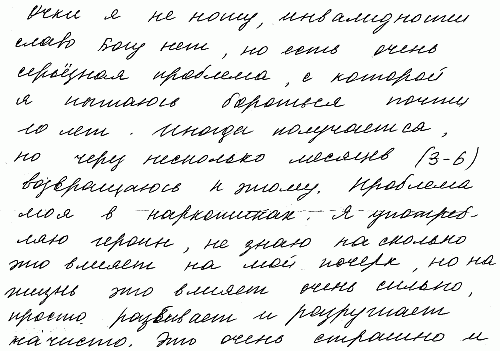 Очки я не ношу, инвалидности
славо Богу нет, но есть очень
серьёзная проблема, с которой
я пытаюсь бороться почти
10 лет. Иногда получается,
но через несколько месяцев (3-6)
возвращаюсь к этому. Проблема
моя в наркотиках. Я употреб-
ляю героин, не знаю насколько
это влияет на мой почерк, но на
жизнь это влияет очень сильно,
просто разбивает и разрушает
начисто. Это очень страшно и